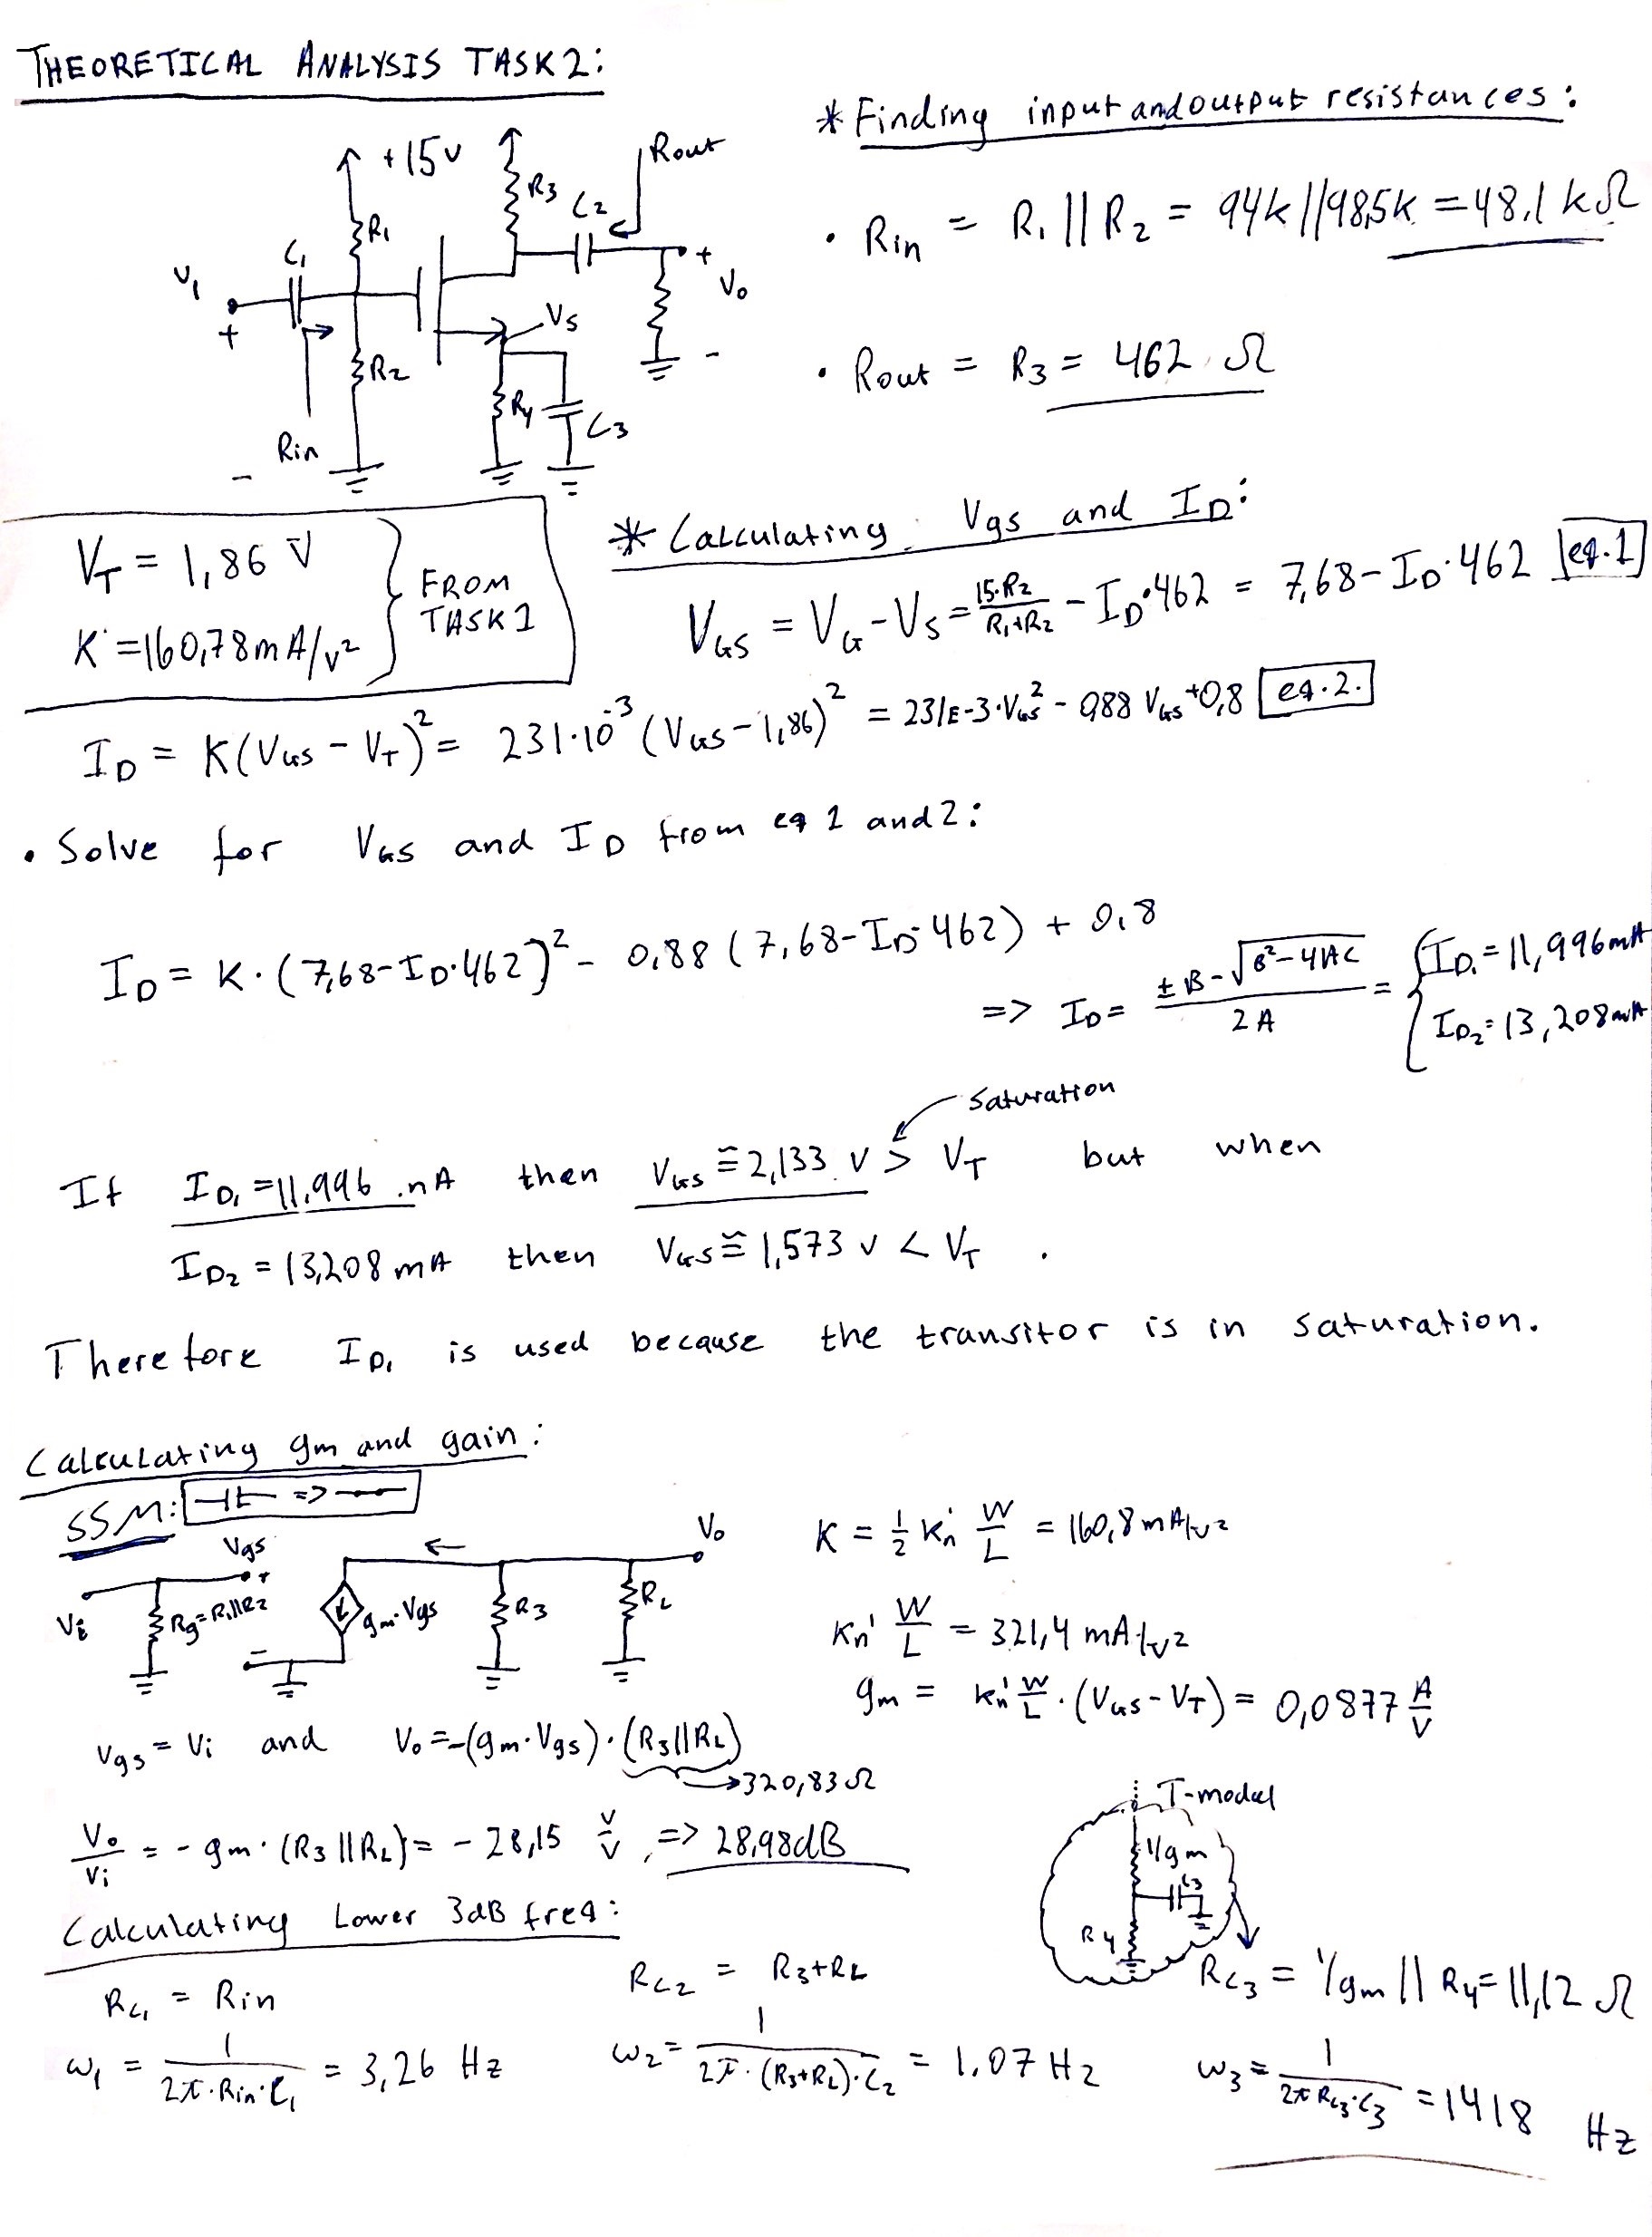 THEORETICAL ANALYSIS TASK2:
* Finding input and output resistances:
+15v
Rout
R3
C2
R1
C1
VI
+
+
Vo
Vs
-
R2
R4
C3
Rin
-
• Rin = R1 || R2 = 94k||98,5k = 48,1 kΩ
• Rout = R3 = 462 Ω
VT = 1,86 V
K = 160,78 mA/V²
FROM TASK1
* Calculating Vgs and ID:
VGS = VG - VS = 15·R2 / R1+R2 - ID·462 = 7,68 - ID·462 eq.1
ID = K(VGS - VT)² = 231·10⁻³ (VGS - 1,86)² = 231E-3·VGS² - 0,88 VGS + 0,8 eq.2.
• Solve for VGS and ID from eq 1 and 2:
ID = K·(7,68 - ID·462)² - 0,88 (7,68 - ID·462) + 0,8
=> ID = ± B - √B² - 4AC / 2A = { ID1 = 11,996mA
ID2 = 13,208mA
Saturation
If ID1 = 11,996 mA then VGS ≅ 2,133 V > VT but when
ID2 = 13,208 mA then VGS ≅ 1,573 V < VT .
Therefore ID1 is used because the transitor is in saturation.
Calculating gm and gain:
SSM: =>
Vgs
+
Vi
Rg=R1||R2
-
gm·Vgs
R3
RL
Vo
K = 1/2 Kn' W/L = 160,8 mA/V²
Kn' W/L = 321,4 mA/V²
gm = Kn' W/L · (VGS - VT) = 0,0877 A/V
Vgs = Vi and Vo = -(gm·Vgs)·(R3||RL)
→320,83 Ω
Vo/Vi = - gm·(R3||RL) = - 28,15 V/V => 28,98dB
T-model
1/gm
C3
R4
Calculating Lower 3dB freq:
RC1 = Rin
RC2 = R3+RL
RC3 = 1/gm || R4 = 11,12 Ω
ω1 = 1 / 2π·Rin·C1 = 3,26 Hz
ω2 = 1 / 2π·(R3+RL)·C2 = 1.07 Hz
ω3 = 1 / 2π RC3·C3 = 1418 Hz